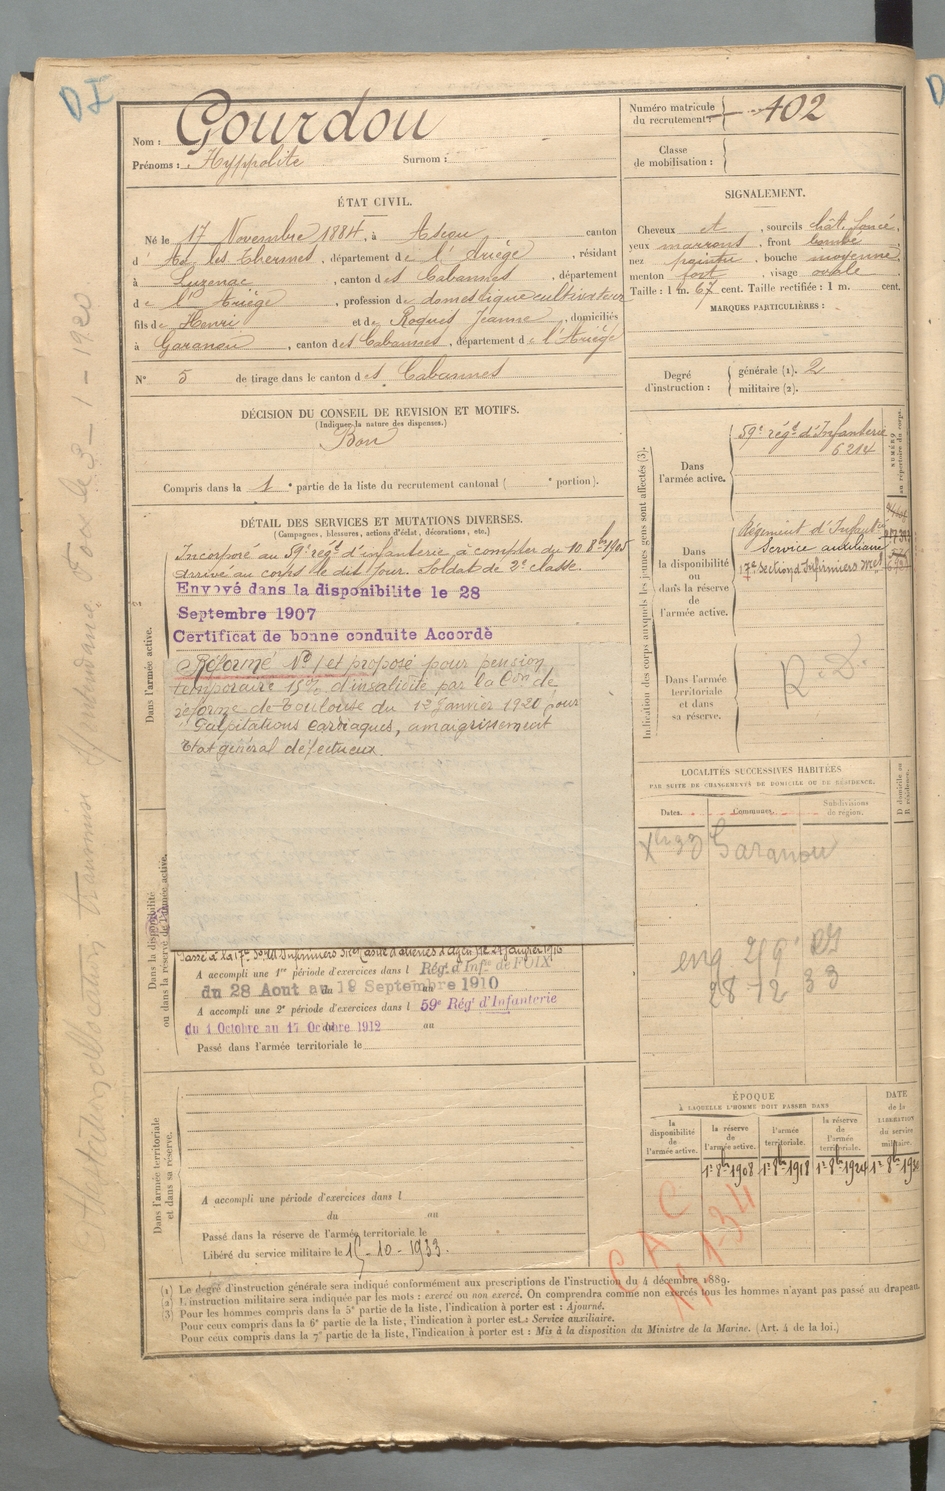 Nom : Gourdou
Prénoms : Hyppolite Surnom :
Numéro matricule du recrutement : 402
Classe de mobilisation :
ÉTAT CIVIL.
Né le 17 Novembre 1884, à Ascou canton
d'Ax les Thermes, département de l'Ariège, résidant
à Luzenac, canton des Cabannes, département
de l'Ariège, profession de domestique cultivateur
fils de Henri et de Roques Jeanne, domiciliés
à Garanou, canton des Cabannes, département de l'Ariège
N° 5 de tirage dans le canton des Cabannes
SIGNALEMENT.
Cheveux et, sourcils chât. foncé,
yeux marrons, front bombé,
nez pointu, bouche moyenne,
menton fort, visage ovale
Taille : 1 m. 67 cent. Taille rectifiée : 1 m. cent.
MARQUES PARTICULIÈRES :
Degré d'instruction : générale (1). 2
militaire (2).
DÉCISION DU CONSEIL DE REVISION ET MOTIFS.
(Indiquer la nature des dispenses.)
Bon
Compris dans la 1e partie de la liste du recrutement cantonal ( e portion).
DÉTAIL DES SERVICES ET MUTATIONS DIVERSES.
(Campagnes, blessures, actions d'éclat, décorations, etc.)
Dans l'armée active.
Incorporé au 59e régt d'infanterie à compter du 10 8bre 1905
arrivé au corps le dit jour. Soldat de 2e classe.
Envoyé dans la disponibilite le 28
Septembre 1907
Certificat de bonne conduite Accordè
Réformé N° 1 et proposé pour pension
temporaire 15% d'invalidité par la Con de
réforme de Toulouse du 12 Janvier 1920 pour
Palpitations cardiaques, amaigrissement
Etat général défectueux.
Dans la disponibilité ou dans la réserve de l'armée active.
A accompli une 1re période d'exercices dans l Rég. d'Infie de FOIX
du 28 Aout au 19 Septembre 1910
A accompli une 2e période d'exercices dans l 59e Régt d'Infanterie
du 1 Octobre au 17 Octobre 1912 au
Passé dans l'armée territoriale le
Dans l'armée territoriale et dans sa réserve.
A accompli une période d'exercices dans l
du au
Passé dans la réserve de l'armée territoriale le
Libéré du service militaire le 15-10-1933.
Indication des corps auxquels les jeunes gens sont affectés (3).
NUMÉRO au répertoire du corps.
Dans l'armée active.
59e régt d'Infanterie
6214
Dans la disponibilité ou dans la réserve de l'armée active.
Régiment d'Infantie
Service auxiliaire
17e section d'Infirmiers Mres
Dans l'armée territoriale et dans sa réserve.
R.D.
LOCALITÉS SUCCESSIVES HABITÉES
PAR SUITE DE CHANGEMENTS DE DOMICILE OU DE RÉSIDENCE.
Dates. Communes. Subdivisions de région. D domicile ou R résidence.
Garanou
28 12 33
ÉPOQUE
À LAQUELLE L'HOMME DOIT PASSER DANS
DATE de la LIBÉRATION du service militaire.
la disponibilité de l'armée active.
la réserve de l'armée active.
l'armée territoriale.
la réserve de l'armée territoriale.
1er 8bre 1908 1er 8bre 1918 1er 8bre 1924 1er 8bre 1930
(1) Le degré d'instruction générale sera indiqué conformément aux prescriptions de l'instruction du 4 décembre 1889.
(2) L'instruction militaire sera indiquée par les mots : exercé ou non exercé. On comprendra comme non exercés tous les hommes n'ayant pas passé au drapeau.
(3) Pour les hommes compris dans la 5e partie de la liste, l'indication à porter est : Ajourné.
Pour ceux compris dans la 6e partie de la liste, l'indication à porter est : Service auxiliaire.
Pour ceux compris dans la 7e partie de la liste, l'indication à porter est : Mis à la disposition du Ministre de la Marine. (Art. 4 de la loi.)